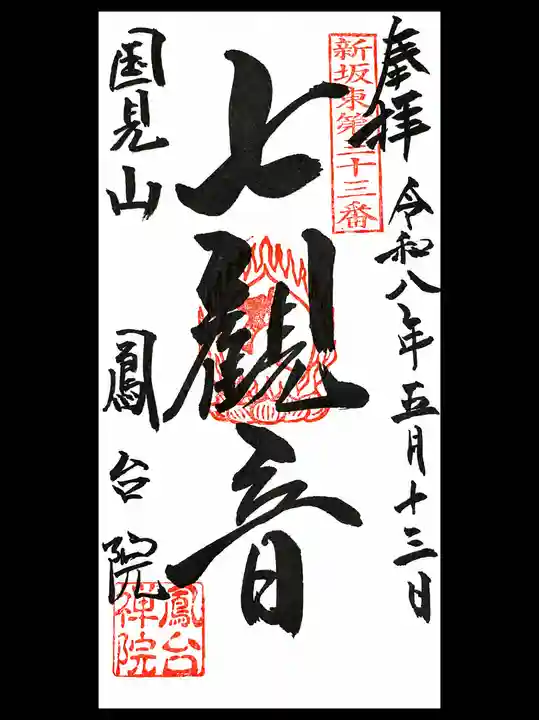 奉拝
令和八年五月十三日
新坂東第二十三番
七観音
国見山
鳳台院
鳳台
禅院